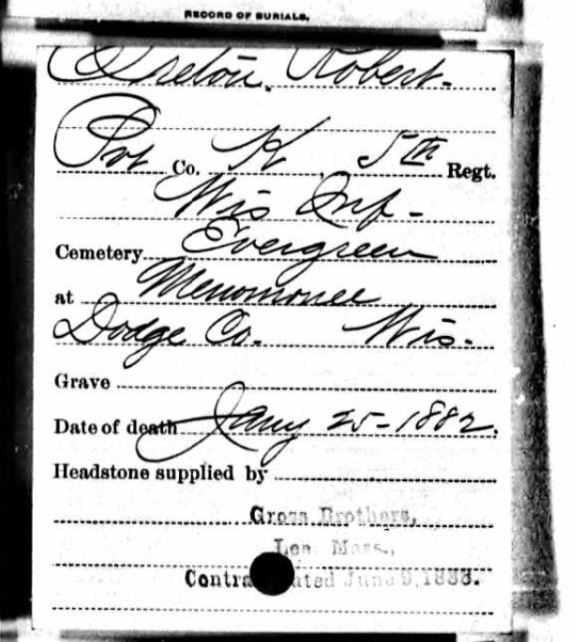 RECORD OF BURIALS.
Robert.
Pvt Co. K, 5th Regt.
Wis Inf-
Cemetery Evergreen
at Menomonee
Dodge Co. Wis.
Grave
Date of death Jany 25-1882.
Headstone supplied by
Gross Brothers,
Lee Mass.,
dated June 9, 1888.